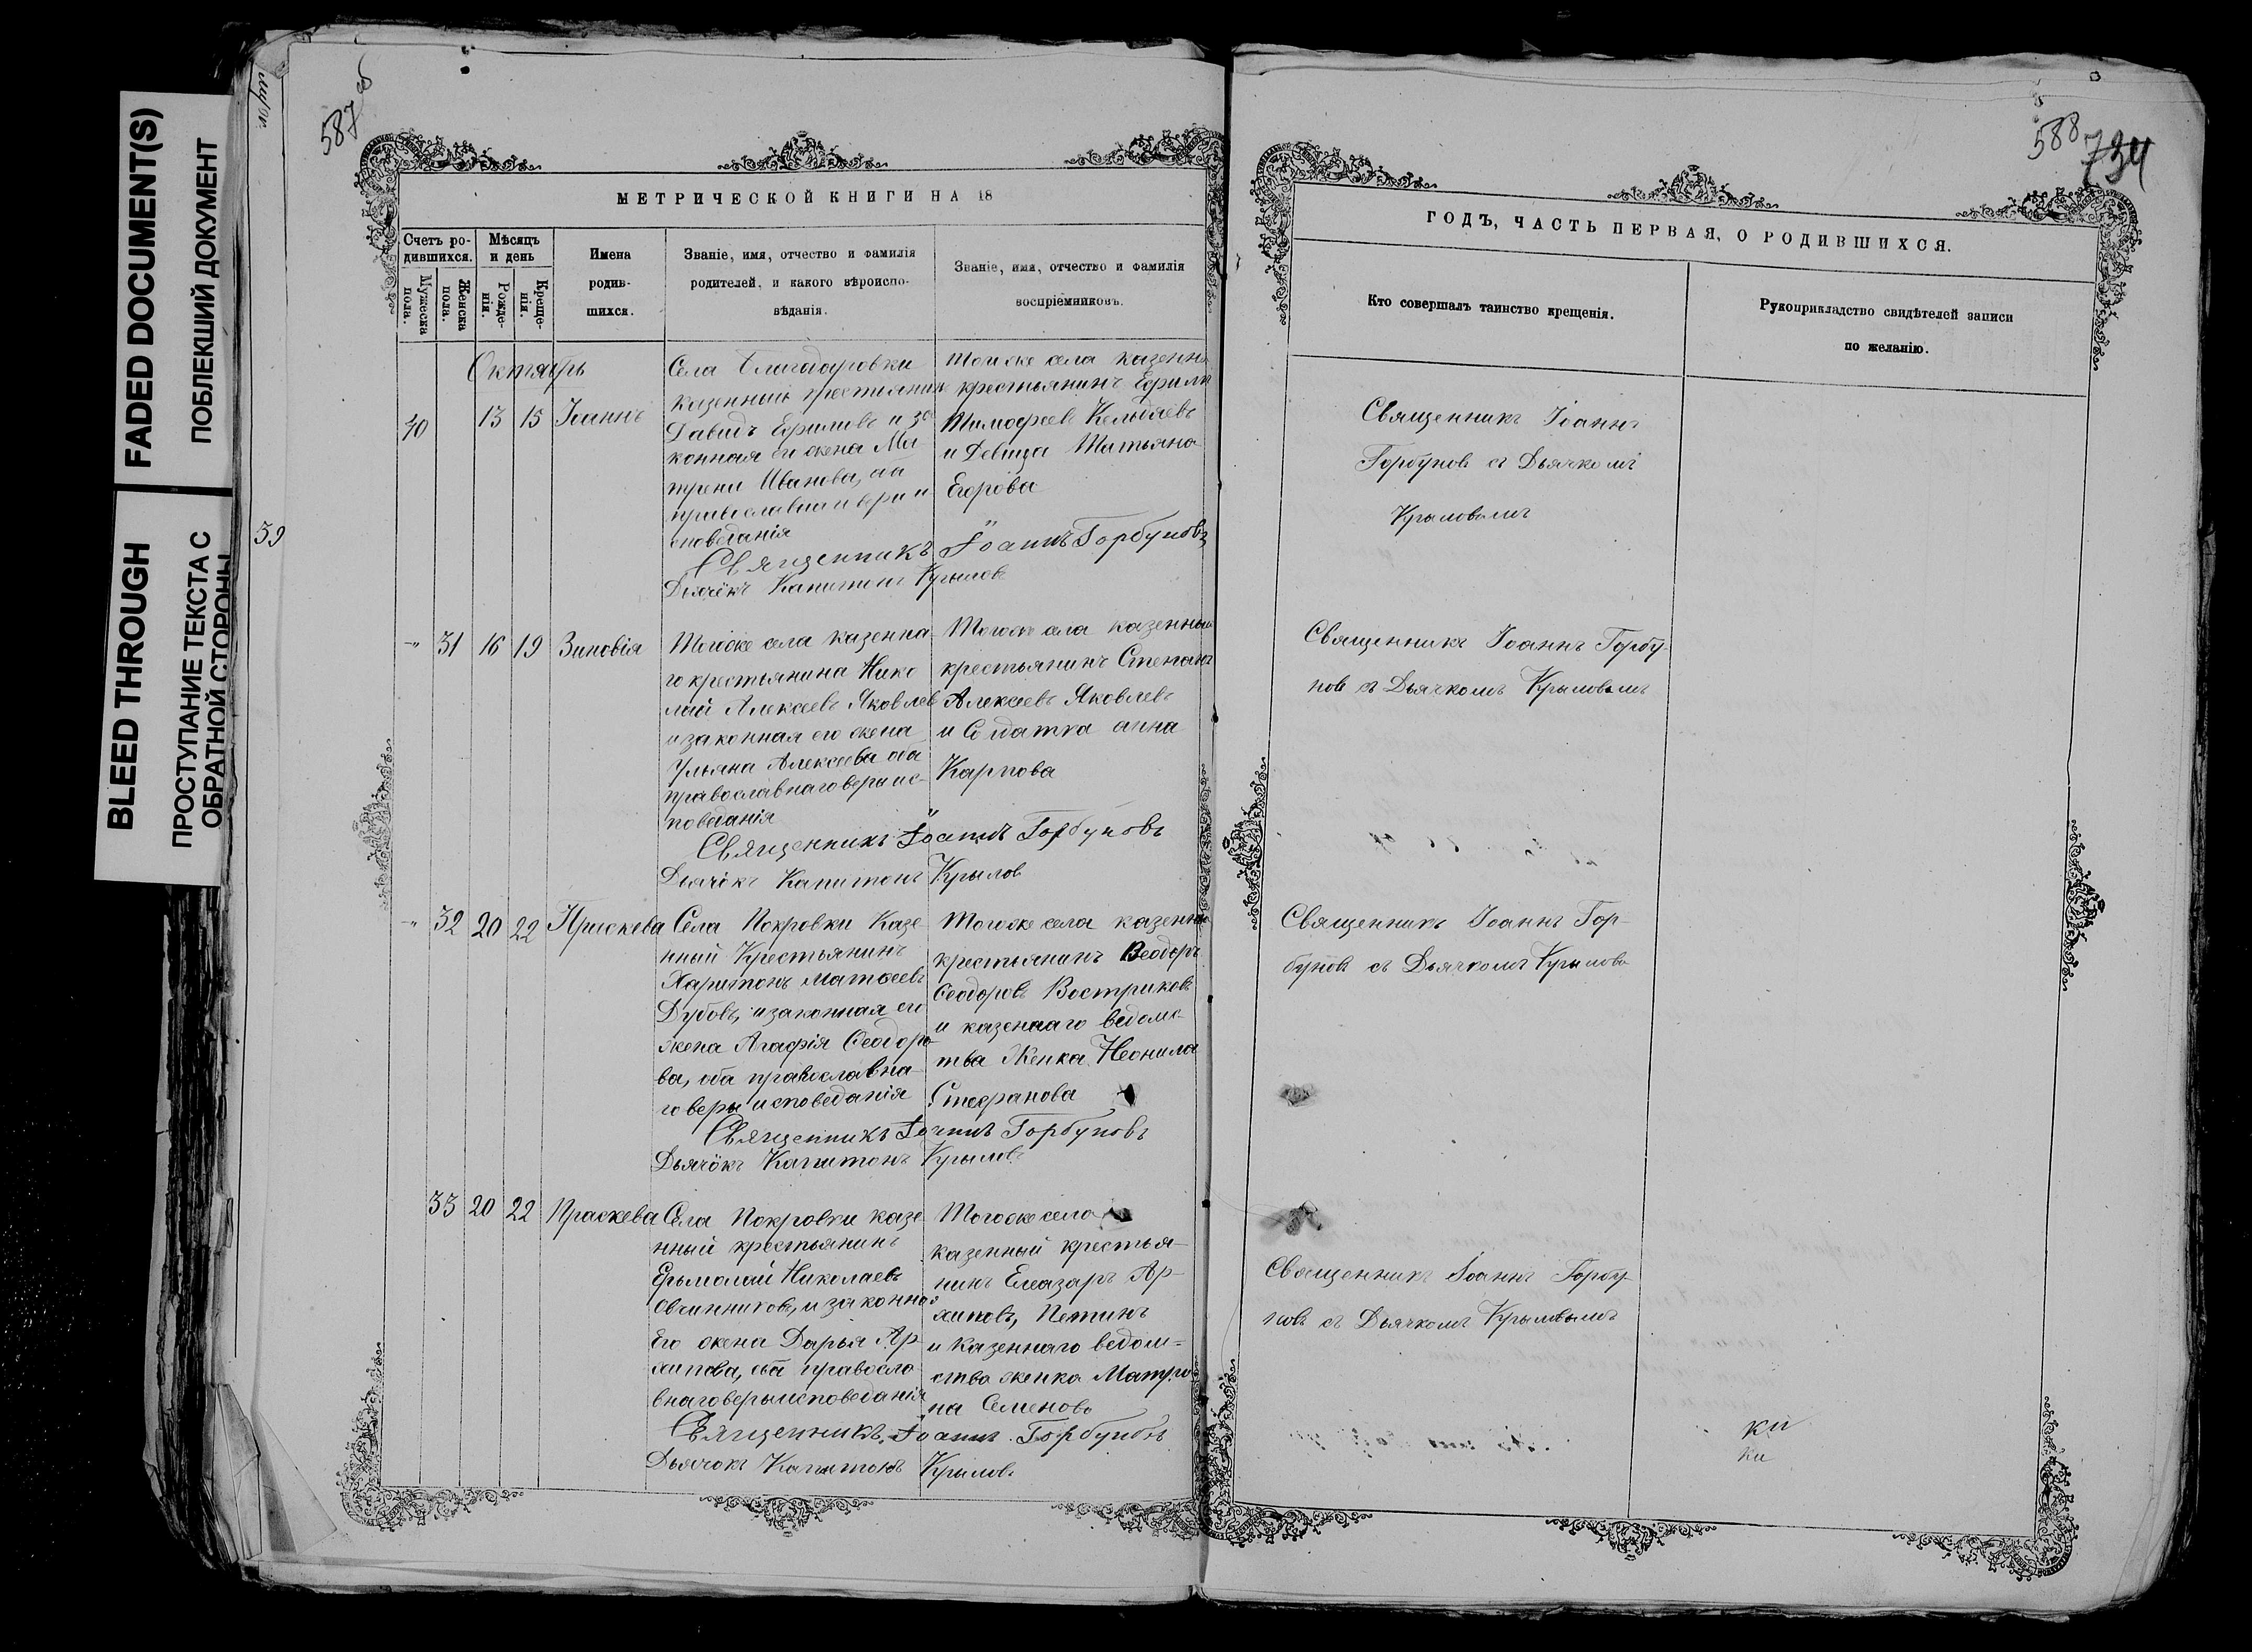 FADED DOCUMENT(S)
ПОБЛЕКШИЙ ДОКУМЕНТ
BLEED THROUGH
ПРОСТУПАНИЕ ТЕКСТА С
ОБРАТНОЙ СТОРОНЫ
39
587
588
734
МЕТРИЧЕСКОЙ КНИГИ НА 18
Счетъ ро-
дившихся.
Мужеска
пола.
Женска
пола.
Мѣсяцъ
и день
Рожде-
нія.
Креще-
нія.
Имена
родив-
шихся.
Званіе, имя, отчество и фамилія
родителей, и какого вѣроиспо-
вѣданія.
Званіе, имя, отчество и фамилія
воспріемниковъ.
Октябрь
40 13 15 Іоаннъ
Села Благодаровки
казенный крестьянинъ
Давидъ Ефимовъ и за
конная его жена Ма
трена Иванова, оба
православнаго веры и
споведанія
Тогоже села казенный
крестьянинъ Ефимъ
Тимофеевъ Кельдяевъ
и Девица Татьяна
Егорова
Священникъ Іоаннъ Горбуновъ
Дьячёкъ Капитонъ Крыловъ
-"- 31 16 19 Зиновія
Тогоже села казенна
го крестьянина Нико
лай Алексеевъ Яковлев
и законная его жена
Ульяна Алексеева оба
православнаго веры ис-
поведанія
Тогоже села казенный
крестьянинъ Степанъ
Алексеевъ Яковлевъ
и Солдатка анна
Карпова
Священникъ Іоаннъ Горбуновъ
Дьячёкъ Капитонъ Крылов
-"- 32 20 22 Праскева
Села Покровки Казе
нный Крестьянинъ
Харитонъ Матвеевъ
Дубовъ, и законная его
жена Агафія Феодоро
ва, оба православна
го веры исповеданія
Тогоже села казенный
крестьянинъ Феодоръ
Феодоровъ Востриковъ
и казеннаго ведомс-
тва Женка Неонила
Стефанова
Священникъ Іоаннъ Горбуновъ
Дьячёкъ Капитонъ Крыловъ
33 20 22 Праскева
Села Покровки казе
нный крестьянинъ
Ермолай Николаевъ
Овчинниковъ, и законная
Его жена Дарья Ар-
хипова, оба правосла
внаго веры исповеданія
Тогоже села
казенный крестья-
нинъ Елеазаръ Ар-
хиповъ, Петинъ
и Казеннаго ведом=
ства женка Матро
на Семенова
Священникъ Іоаннъ Горбуновъ
Дьячокъ Капитонъ Крыловъ
ГОДЪ, ЧАСТЬ ПЕРВАЯ, О РОДИВШИХСЯ.
Кто совершалъ таинство крещенія.
Рукоприкладство свидѣтелей записи
по желанію.
Священникъ Іоаннъ
Горбуновъ съ Дьячкомъ
Крыловымъ
Священникъ Іоаннъ Горбу-
новъ съ Дьячкомъ Крыловымъ
Священникъ Іоаннъ Гор-
буновъ съ Дьячкомъ Крыловы
Священникъ Іоаннъ Горбу-
новъ съ Дьячкомъ Крыловымъ
ки
ки